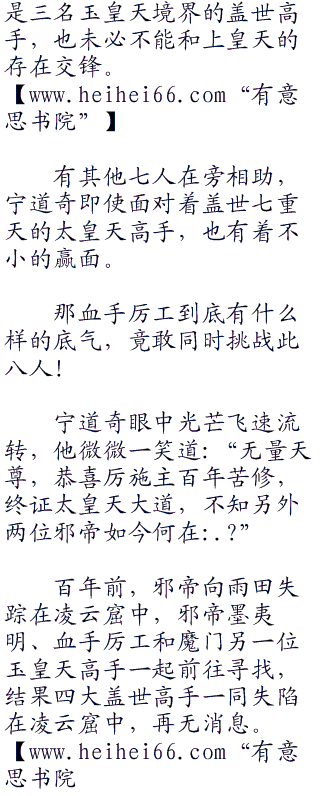 是三名玉皇天境界的盖世高
手，也未必不能和上皇天的
存在交锋。
【www.heihei66.com“有意
思书院”】
有其他七人在旁相助，
宁道奇即使面对着盖世七重
天的太皇天高手，也有着不
小的赢面。
那血手厉工到底有什么
样的底气，竟敢同时挑战此
八人！
宁道奇眼中光芒飞速流
转，他微微一笑道：“无量天
尊，恭喜厉施主百年苦修，
终证太皇天大道，不知另外
两位邪帝如今何在:.?”
百年前，邪帝向雨田失
踪在凌云窟中，邪帝墨夷
明、血手厉工和魔门另一位
玉皇天高手一起前往寻找，
结果四大盖世高手一同失陷
在凌云窟中，再无消息。
【www.heihei66.com“有意
思书院